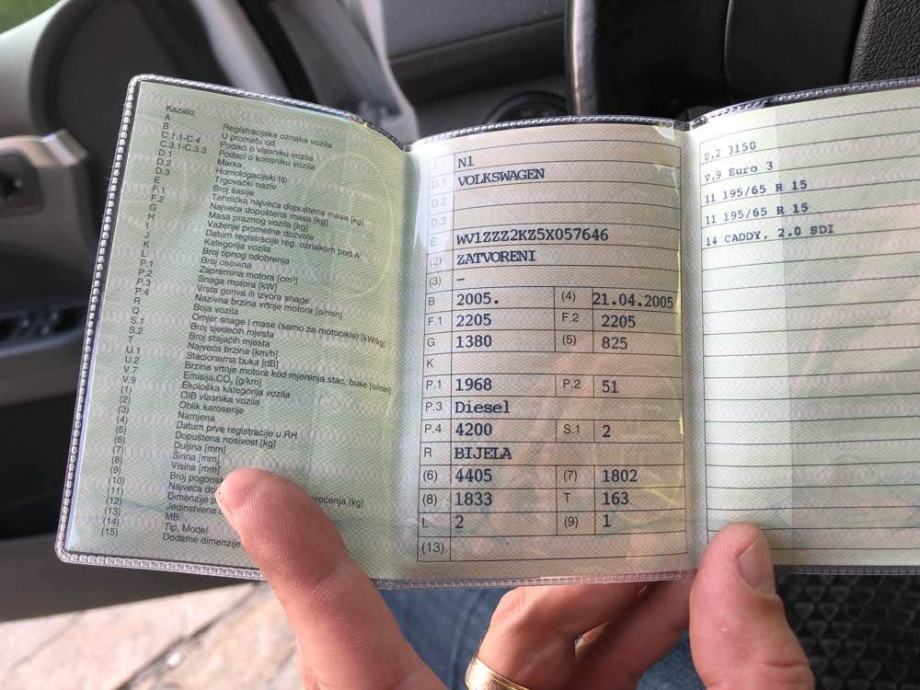 Kazalo:
A Registracijska oznaka vozila
B U prometu od
C.1.1-C.4 Podaci o vlasniku vozila
C.3.1-C.3.3 Podaci o korisniku vozila
D.1 Marka
D.2 Homologacijski tip
D.3 Trgovački naziv
E Broj šasije
F.1 Tehnička najveća dopuštena masa [kg]
F.2 Najveća dopuštena masa [kg]
G Masa praznog vozila [kg]
H Važenje prometne dozvole
I Datum registracije reg. oznakom pod A
J Kategorija vozila
K Broj tipnog odobrenja
L Broj osovina
P.1 Zapremina motora [cm³]
P.2 Snaga motora [kW]
P.3 Vrsta goriva ili izvora snage
P.4 Nazivna brzina vrtnje motora [o/min]
R Boja vozila
Q Omjer snage i mase (samo za motocikle) [kW/kg]
S.1 Broj sjedećih mjesta
S.2 Broj stajaćih mjesta
T Najveća brzina [km/h]
U.1 Stacionarna buka [dB]
U.2 Brzina vrtnje motora kod mjerenja stac. buke [o/min]
V.7 Emisija CO₂ [g/km]
V.9 Ekološka kategorija vozila
(1) OIB vlasnika vozila
(2) Oblik karoserije
(3) Namjena
(4) Datum prve registracije u RH
(5) Dopuštena nosivost [kg]
(6) Duljina [mm]
(7) Širina [mm]
(8) Visina [mm]
(9) Broj
(10) Najveća [kg]
(11) Dimenzije
(12) Jedinstvena
(13) MB
(14) Tip, Model
(15) Dodatne dimenzije
J N1
D.1 VOLKSWAGEN
D.2
D.3
E WV1ZZZ2KZ5X057646
(2) ZATVORENI
(3) –
B 2005. (4) 21.04.2005
F.1 2205 F.2 2205
G 1380 (5) 825
K
P.1 1968 P.2 51
P.3 Diesel
P.4 4200 S.1 2
R BIJELA
(6) 4405 (7) 1802
(8) 1833 T 163
L 2 (9) 1
(13)
D.2 3150
V.9 Euro 3
11 195/65 R 15
11 195/65 R 15
14 CADDY, 2.0 SDI